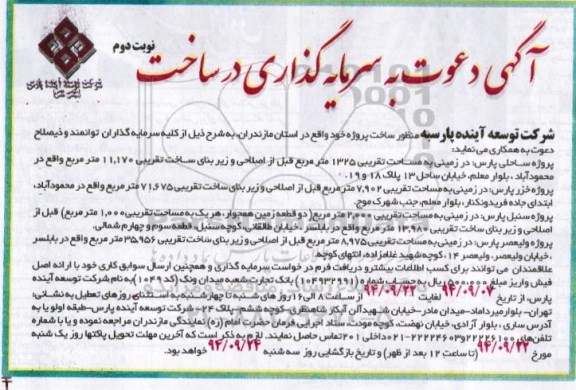 آگهی دعوت به سرمایه گذاری در ساخت
نوبت دوم
شرکت توسعه آینده پارسیه منظور ساخت پروژه خود واقع در استان مازندران، به شرح ذیل از کلیه سرمایه گذاران توانمند و ذیصلاح
دعوت به همکاری می نماید:
پروژه ساحلی پارس: در زمینی به مساحت تقریبی ۱۳۲۵ متر مربع قبل از اصلاحی و زیر بنای ساخت تقریبی ۱۱,۱۷۰ متر مربع واقع در
محمودآباد، بلوار معلم، خیابان ساحل ۱۳ پلاک ۱۸ و ۱۹.
پروژه خزر پارس: در زمینی به مساحت تقریبی ۷,۹۰۲ متر مربع قبل از اصلاحی و زیر بنای ساخت تقریبی ۷۱,۶۷۵ متر مربع واقع در محمودآباد،
ابتدای جاده فریدونکنار، بلوار معلم، جنب شهرک موج.
پروژه سنبل پارس: در زمینی به مساحت تقریبی ۲۰۰۰ متر مربع (دو قطعه زمین همجوار، هر یک به مساحت تقریبی ۱,۰۰۰ متر مربع) قبل از
اصلاحی و زیر بنای ساخت تقریبی ۱۳,۹۸۰ متر مربع واقع در بابلسر، خیابان طالقانی، کوچه سنبل، قطعه سوم و چهارم شمالی.
پروژه ولیعصر پارس: در زمینی به مساحت تقریبی ۸,۹۷۵ متر مربع قبل از اصلاحی و زیر بنای ساخت تقریبی ۳۵,۹۵۶ متر مربع واقع در بابلسر
، خیابان ولیعصر، ولیعصر ۱۴، کوچه شهید غلامزاده، انتهای کوچه.
علاقمندان می توانند برای کسب اطلاعات بیشتر و دریافت فرم درخواست سرمایه گذاری و همچنین ارسال سوابق کاری خود با ارائه اصل
فیش واریز مبلغ ریال به حساب شماره (۱۰۴۹۳۳۹۹۱) بانک تجارت شعبه میدان ونک (کد ۱۰۴۹) به نام شرکت توسعه آینده
پارس، از تاریخ ۹۴/۰۹/۰۴ لغایت ۹۴/۰۹/۲۲ از ساعت ۸ الی ۱۶ روز های شنبه تا چهارشنبه به استثنای روزهای تعطیل به نشانی:
تهران- بلوار میرداماد- میدان مادر- خیابان شهید آلن آبکار شاهنظری- کوچه دوم- پلاک ۲۴- شرکت توسعه آینده پارس- طبقه اول و یا به
آدرس ساری، بلوار آزادی، خیابان نهضت، کوچه مودت، ستاد اجرایی فرمان حضرت امام (ره) نمایندگی مازندران مراجعه نموده و یا با شماره
تلفن های ۰۲۱-۲۲۲۲۴۶۰۳ و ۲۲۲۲۶۱۰۰-۰۲۱ داخلی ۲۰۱ تماس حاصل نمایند. لازم به ذکر است که آخرین مهلت تحویل پاکتها روز یک شنبه
مورخ ۹۴/۰۹/۲۲ (تا ساعت ۱۲ بعد از ظهر) و تاریخ بازگشایی روز سه شنبه ۹۴/۰۹/۲۴ خواهد بود.